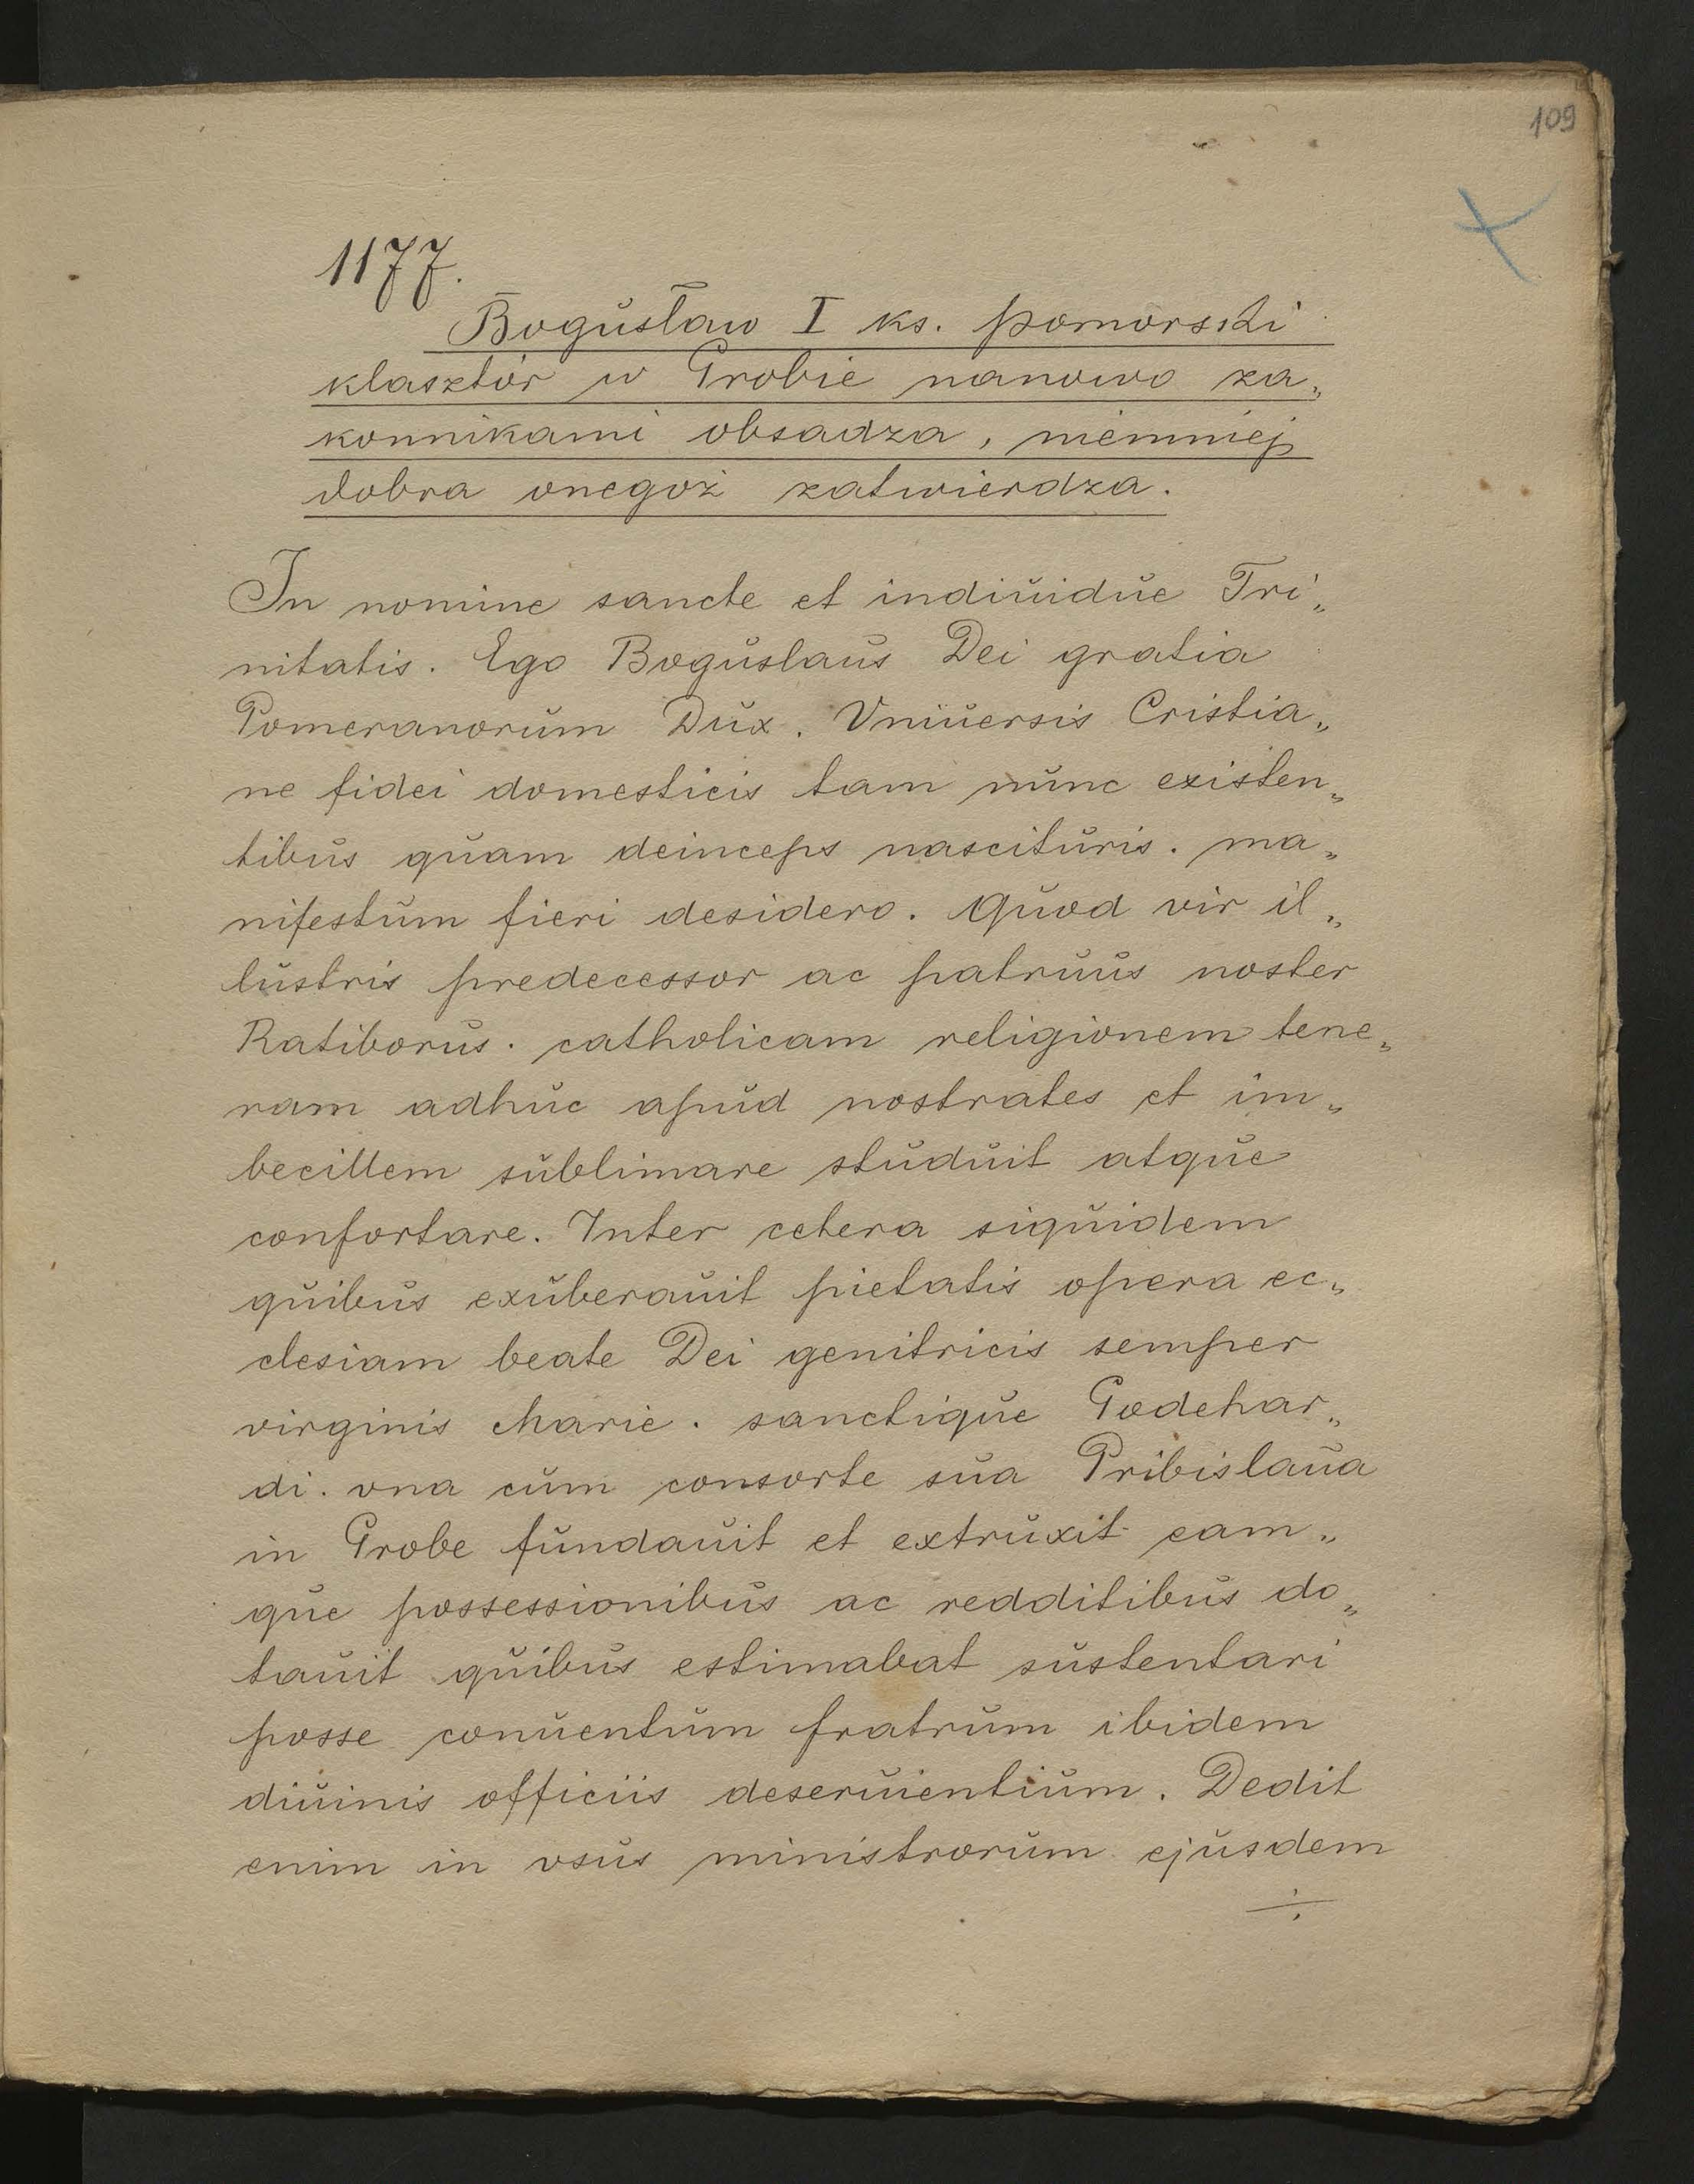 109
1177.
Bogusław I ks. pomorski
klasztór w Grobie nanowo za„
konnikami obsadza, niemniej
dobra onegoż zatwierdza.
In nomine sancte et indiuidue Tri„
nitatis. Ego Boguslaus Dei gratia
Pomeranorum Dux. Vniuersis Cristia„
ne fidei domesticis tam nunc existen„
tibus quam deinceps nascituris. ma„
nifestum fieri desidero. Quod vir il„
lustris predecessor ac patruus noster
Ratiborus. catholicam religionem tene„
ram adhuc apud nostrates et im„
becillem sublimare studuit atque
confortare. Inter cetera siquidem
quibus exuberauit pietatis opera ec„
clesiam beate Dei genitricis semper
virginis Marie. sanctique Godehar„
di. vna cum consorte sua Pribislaua
in Grobe fundauit et extruxit eam„
que possessionibus ac redditibus do„
tauit quibus estimabat sustentari
posse conuentum fratrum ibidem
diuinis officiis deseruientium. Dedit
enim in vsus ministrorum ejusdem
÷